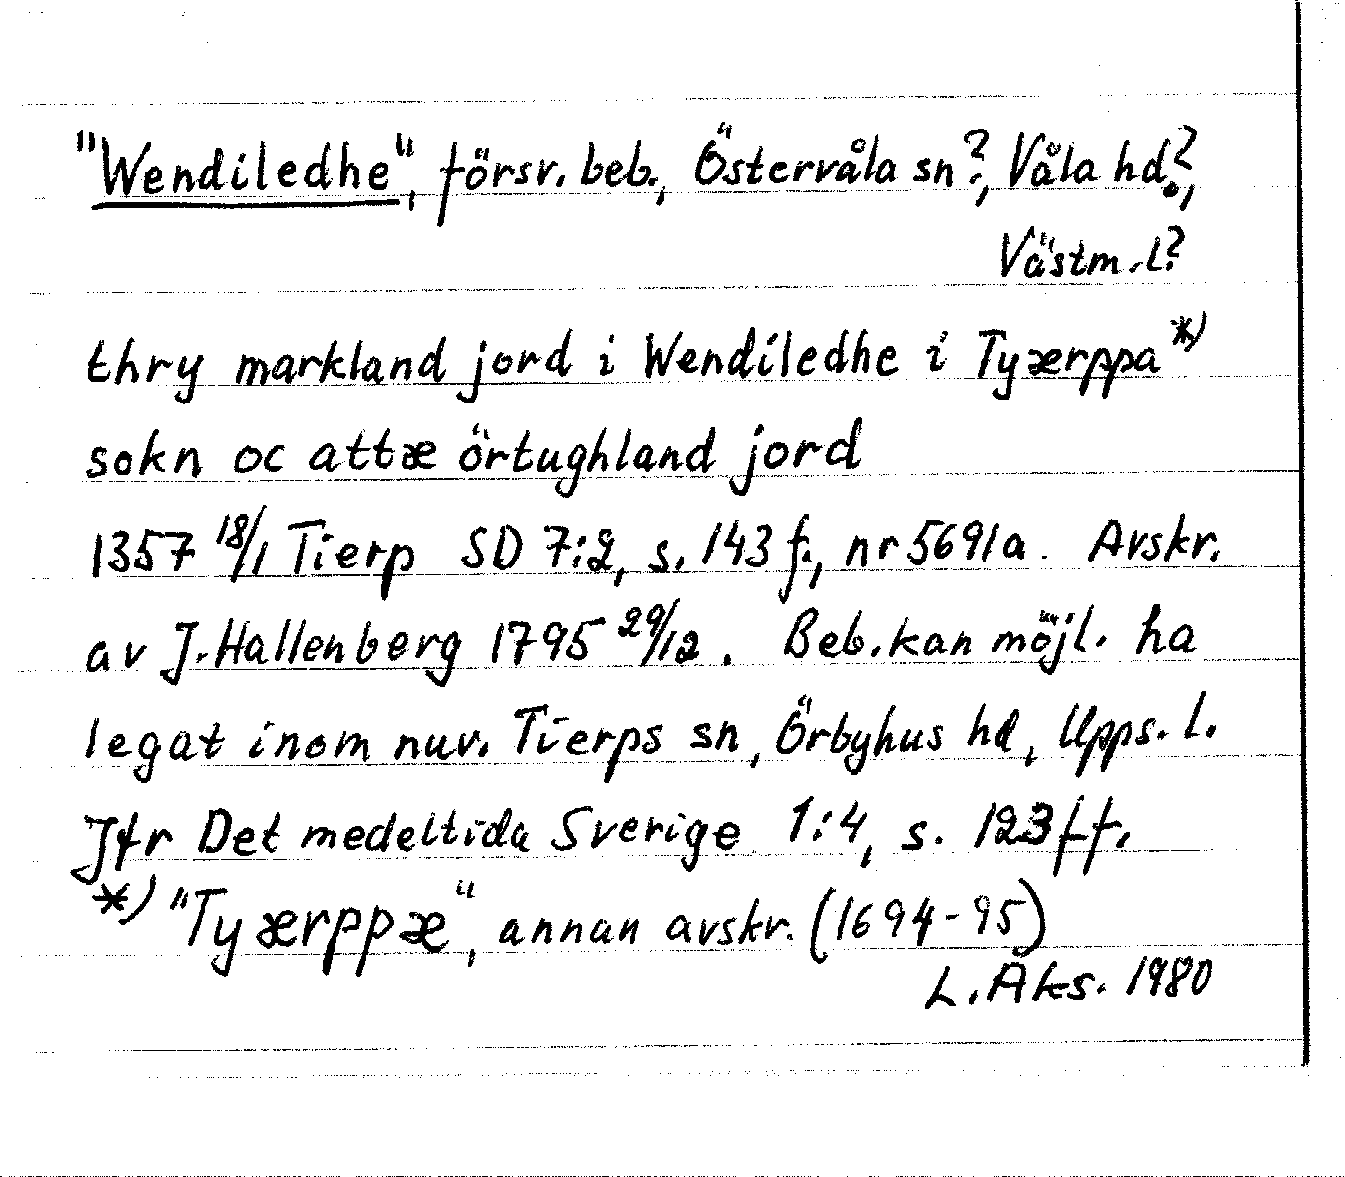 "Wendiledhe", försv. beb., Östervåla sn?, Våla hd?,
Västm. l?
thry markland jord i Wendiledhe i Tyærppa *)
sokn oc attæ örtughland jord
1357 18/1 Tierp SD 7:2, s. 143 f., nr 5691a. Avskr.
av J. Hallenberg 1795 29/12. Beb. kan möjl. ha
legat inom nuv. Tierps sn, Örbyhus hd, Upps. l.
Jfr Det medeltida Sverige 1:4, s. 123 ff.
*) "Tyærppæ", annan avskr. (1694-95)
L. Åks. 1980